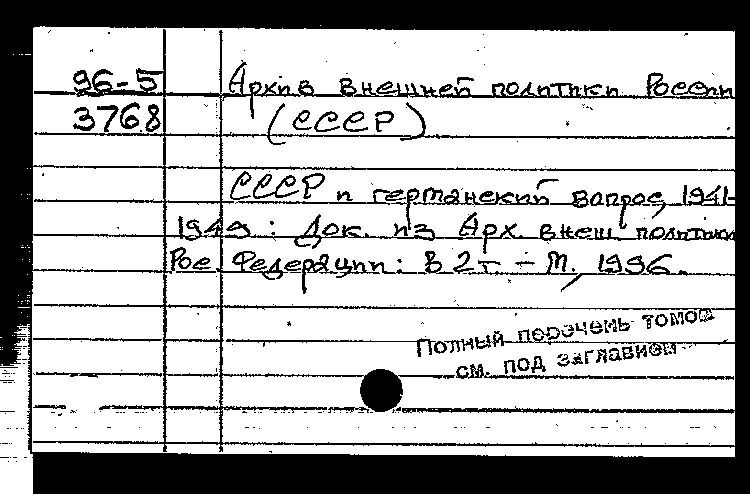 96-5 Архив внешней политики России
3768 (СССР)
СССР и германский вопрос, 1941-
1949: Док. из Арх. внеш. политики
Рос. Федерации: В 2 т. - М., 1996.
Полный перечень томов
см. под заглавием